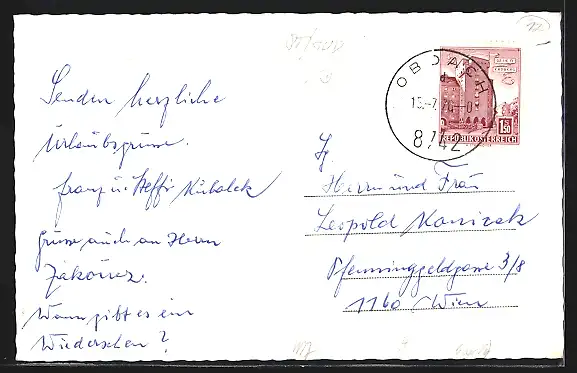 Senden herzliche
Urlaubsgrüsse.
Franz u. Steffi Kubalek
Grüsse auch an Herrn
Wann gibt es ein
Wiedersehen?
OBDACH
8742
1.50
REPUBLIK ÖSTERREICH
Fg.
Herrn und Frau
Leopold Konicek
Pfenninggeldgasse 3/8
1160 Wien
12